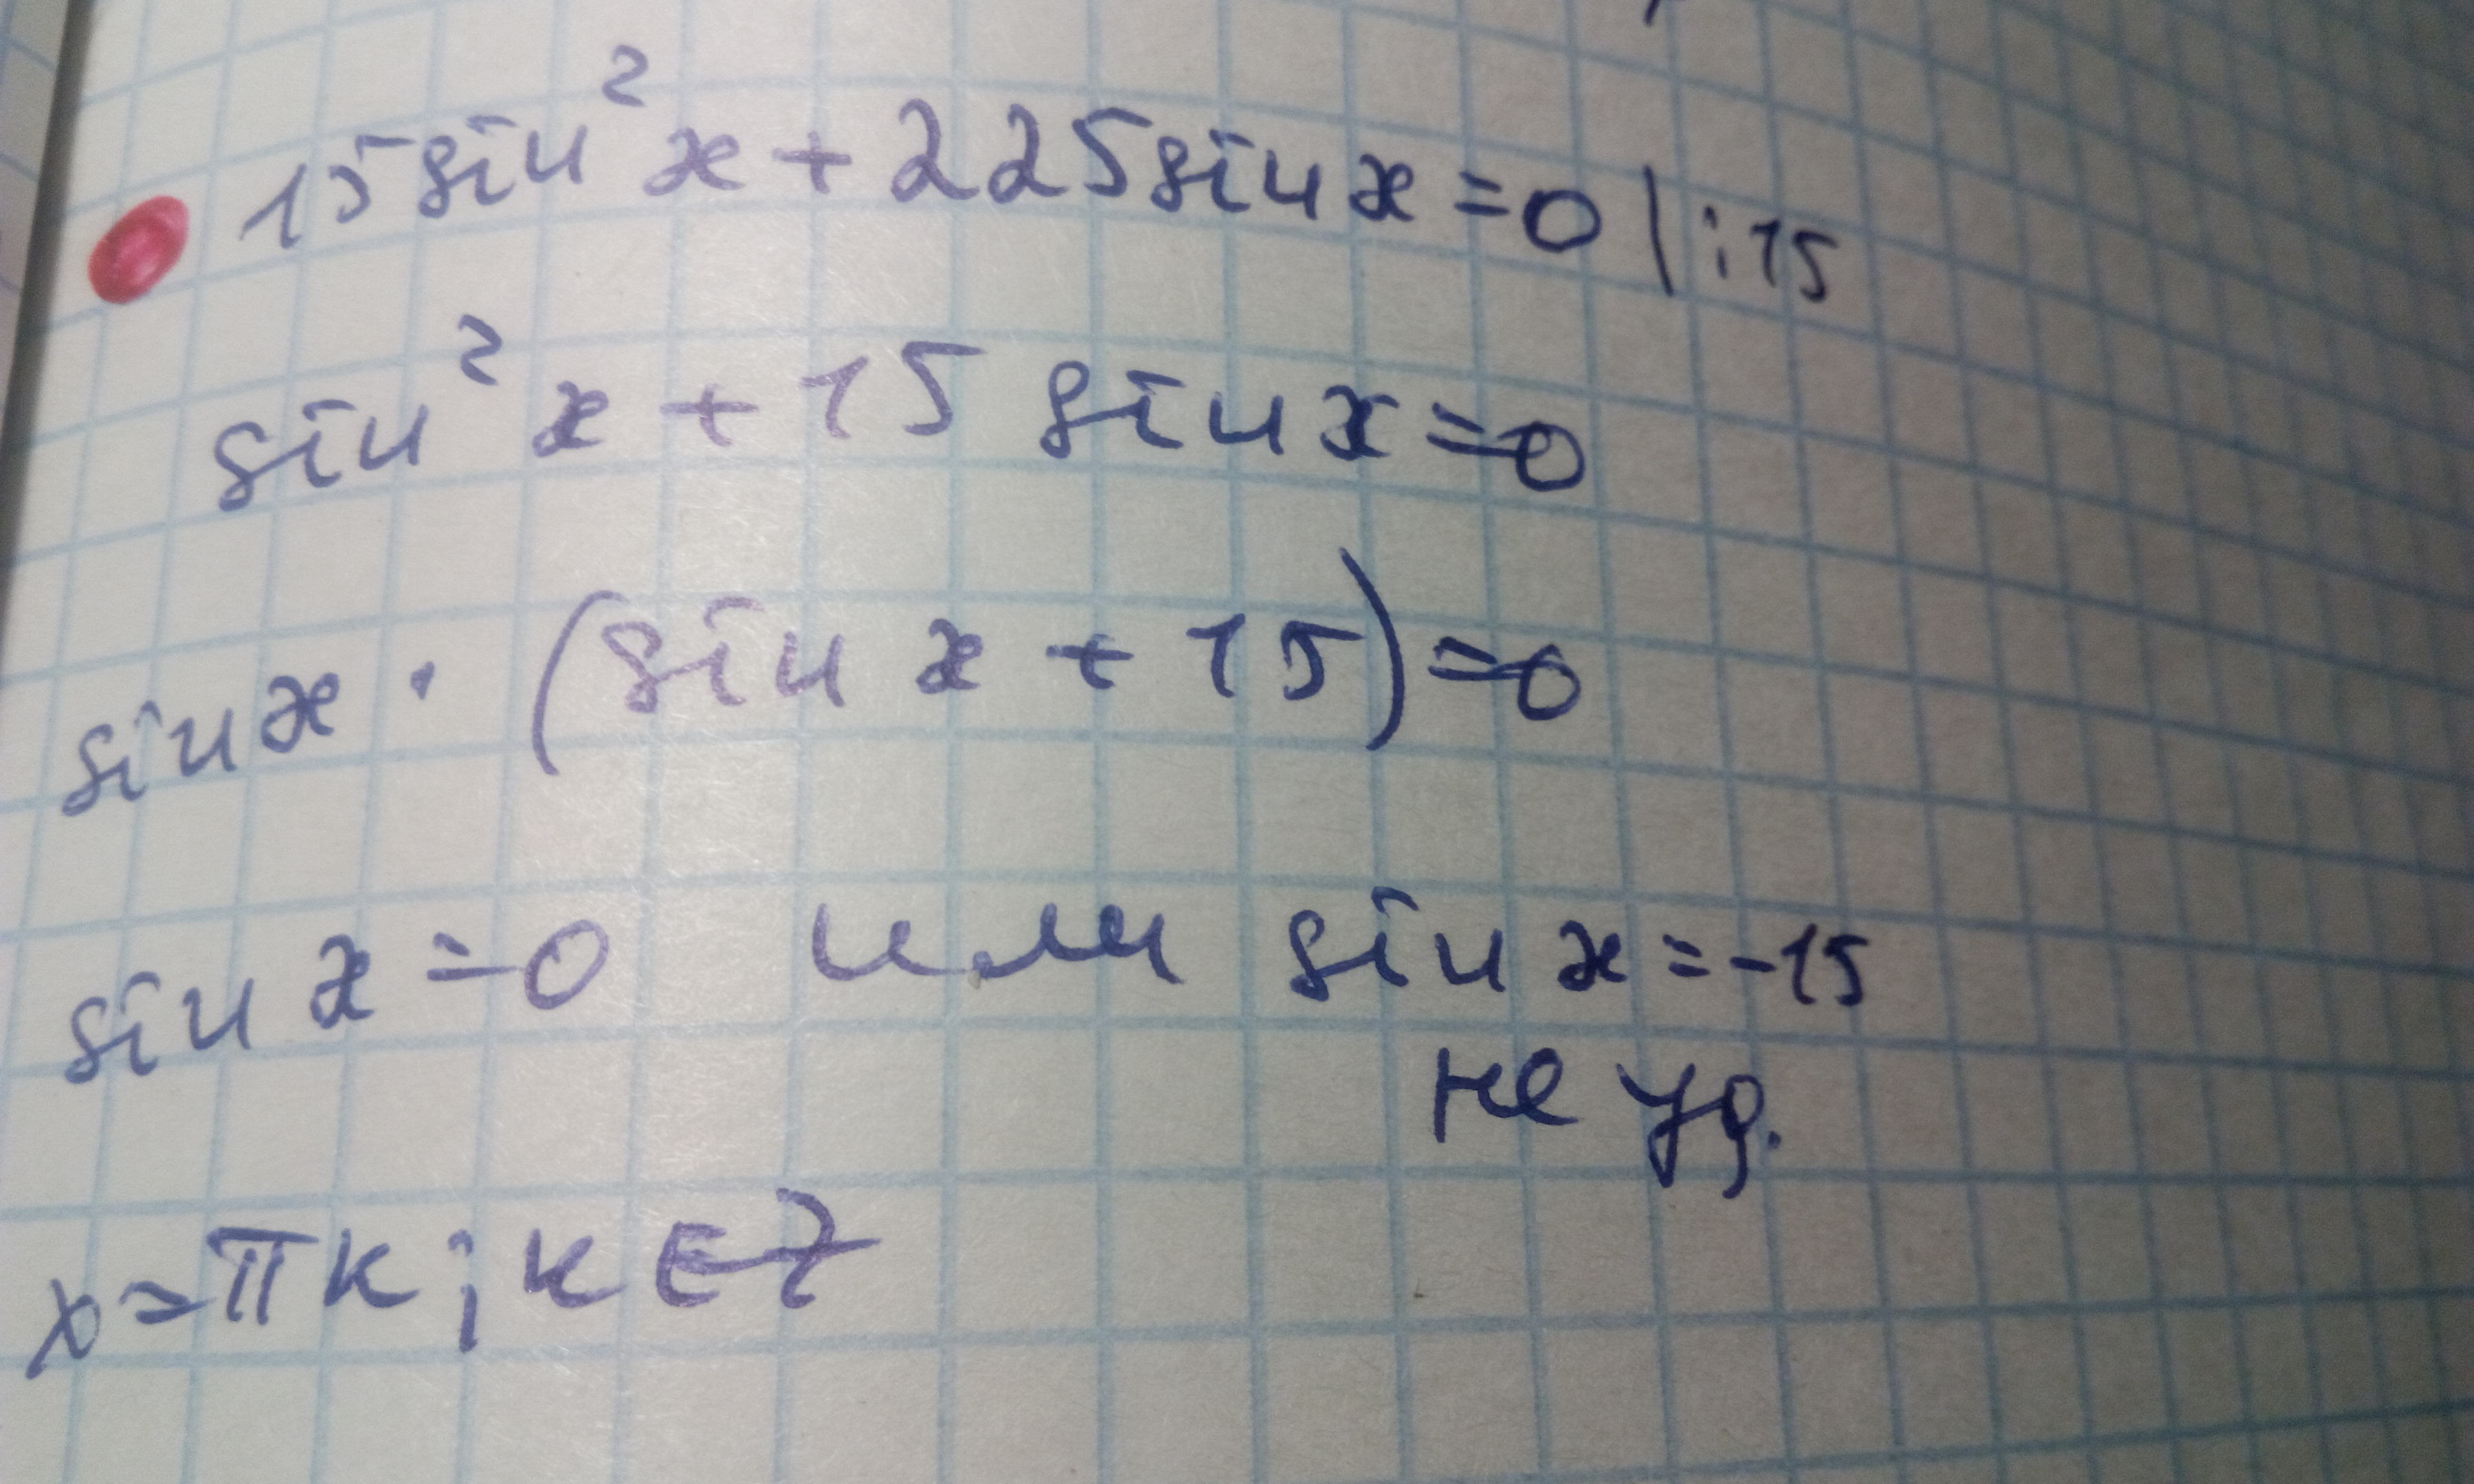 15sin²x + 225sinx = 0 | :15
sin²x + 15 sinx = 0
sinx · (sin x + 15) = 0
sin x = 0 или sin x = -15
не уд.
x = πк; к ∈ Z